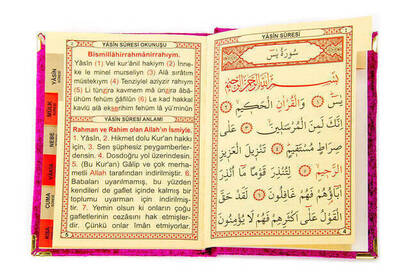 YÂSÎN SÛRESİ OKUNUŞU
Bismillâhirrahmânirrahıym.
Yâsîn (1) Vel kur'ânil hakiym (2) İnne-
ke le minel murseliyn (3) Alâ sırâtım
müstekıym (4) Tenziylel aziyzir rahıym
(5) Li tünzira kavmem mâ ünzira âbâ-
ühüm fehüm ğâfilûn (6) Le kad hakkal
kavlü alâ ekserihim fehüm lâ yü'minûn
YÂSÎN SÛRESİ ANLAMI
Rahman ve Rahim olan Allah'ın İsmiyle.
1. Yâsîn, 2. Hikmet dolu Kur'an hakkı
için, 3. Sen şüphesiz peygamberler-
densin. 4. Dosdoğru yol üzerindesin.
5. (Bu Kur'an) Gâlip ve çok merha-
metli Allah tarafından indirilmiştir. 6.
Babaları uyarılmamış, bu yüzden
kendileri de gaflet içinde kalmış bir
toplumu uyarman için indirilmiş-
tir. 7. Yemin olsun ki onların çoğu
gafletlerinin cezasını hak etmişler-
dir. Çünkü onlar İman etmiyorlar.
MÜLK
NEBE
VAKIA
CUMA
KISA
YÂSÎN SÛRESİ
سُورَةُ يٰسٓ
بِسْمِ اللّٰهِ الرَّحْمٰنِ الرَّحِيمِ
يٰسٓ وَالْقُرْاٰنِ الْحَكِيمِ
اِنَّكَ لَمِنَ الْمُرْسَلِينَ عَلٰى
صِرَاطٍ مُسْتَقِيمٍ تَنْزِيلَ الْعَزِيزِ
الرَّحِيمِ لِتُنْذِرَ قَوْمًا مَٓا اُنْذِرَ
اٰبَٓاؤُهُمْ فَهُمْ غَافِلُونَ لَقَدْ حَقَّ
الْقَوْلُ عَلٰٓى اَكْثَرِهِمْ فَهُمْ لَا يُؤْمِنُونَ